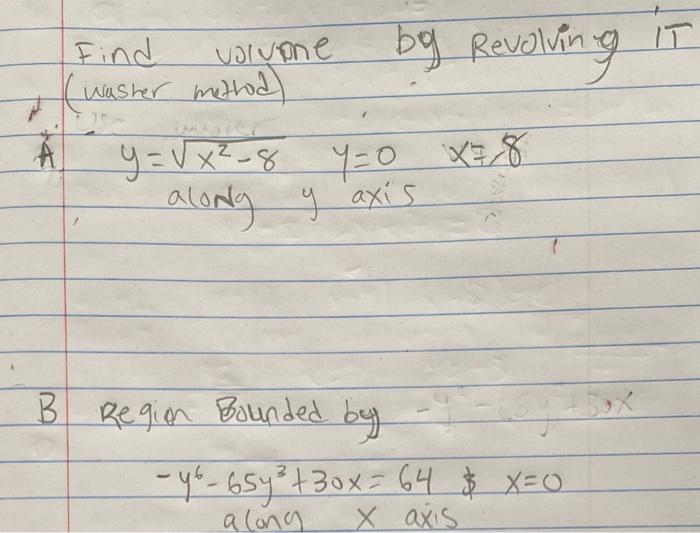 Find volvme by Revolving iT
(washer method)
A y=√x²-8 y=0 x=8
along y axis
B Region Bounded by
-y⁶-65y³+30x=64 & x=0
along x axis